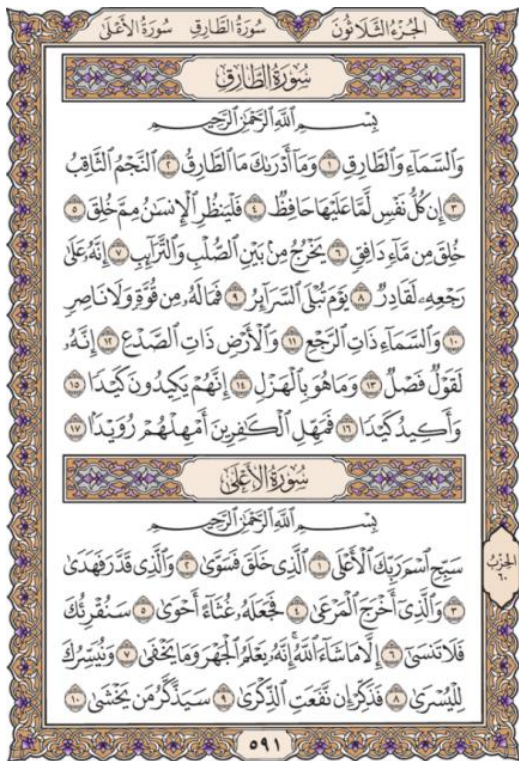 الجُزْءُ الثَّلَاثُونَ سُورَةُ الطَّارِقِ سُورَةُ الأَعْلَى
سُورَةُ الطَّارِقِ
بِسْمِ ٱللَّهِ ٱلرَّحْمَٰنِ ٱلرَّحِيمِ
وَٱلسَّمَآءِ وَٱلطَّارِقِ ١ وَمَآ أَدْرَىٰكَ مَا ٱلطَّارِقُ ٢ ٱلنَّجْمُ ٱلثَّاقِبُ
٣ إِن كُلُّ نَفْسٍ لَّمَّا عَلَيْهَا حَافِظٌ ٤ فَلْيَنظُرِ ٱلْإِنسَٰنُ مِمَّ خُلِقَ ٥
خُلِقَ مِن مَّآءٍ دَافِقٍ ٦ يَخْرُجُ مِنۢ بَيْنِ ٱلصُّلْبِ وَٱلتَّرَآئِبِ ٧ إِنَّهُۥ عَلَىٰ
رَجْعِهِۦ لَقَادِرٌ ٨ يَوْمَ تُبْلَى ٱلسَّرَآئِرُ ٩ فَمَا لَهُۥ مِن قُوَّةٍ وَلَا نَاصِرٍ
١٠ وَٱلسَّمَآءِ ذَاتِ ٱلرَّجْعِ ١١ وَٱلْأَرْضِ ذَاتِ ٱلصَّدْعِ ١٢ إِنَّهُۥ
لَقَوْلٌ فَصْلٌ ١٣ وَمَا هُوَ بِٱلْهَزْلِ ١٤ إِنَّهُمْ يَكِيدُونَ كَيْدًا ١٥
وَأَكِيدُ كَيْدًا ١٦ فَمَهِّلِ ٱلْكَٰفِرِينَ أَمْهِلْهُمْ رُوَيْدًۢا ١٧
سُورَةُ الأَعْلَى
بِسْمِ ٱللَّهِ ٱلرَّحْمَٰنِ ٱلرَّحِيمِ
سَبِّحِ ٱسْمَ رَبِّكَ ٱلْأَعْلَى ١ ٱلَّذِى خَلَقَ فَسَوَّىٰ ٢ وَٱلَّذِى قَدَّرَ فَهَدَىٰ
٣ وَٱلَّذِىٓ أَخْرَجَ ٱلْمَرْعَىٰ ٤ فَجَعَلَهُۥ غُثَآءً أَحْوَىٰ ٥ سَنُقْرِئُكَ
فَلَا تَنسَىٰٓ ٦ إِلَّا مَا شَآءَ ٱللَّهُ إِنَّهُۥ يَعْلَمُ ٱلْجَهْرَ وَمَا يَخْفَىٰ ٧ وَنُيَسِّرُكَ
لِلْيُسْرَىٰ ٨ فَذَكِّرْ إِن نَّفَعَتِ ٱلذِّكْرَىٰ ٩ سَيَذَّكَّرُ مَن يَخْشَىٰ ١٠
الحِزْبُ
٦٠
٥٩١